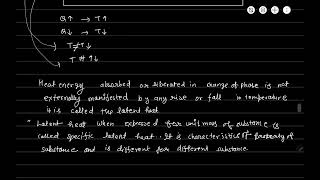 Q↑ → T↑
Q↓ → T↓
T≠T↓
T ≠ ↑↓
Heat energy absorbed or liberated in change of phase is not
externally manifested by any rise or fall in temperature
it is called the latent heat
" Latent heat when expressed for unit mass of substance is
called specific latent heat. It is characteristics property of
substance and is different for different substance.